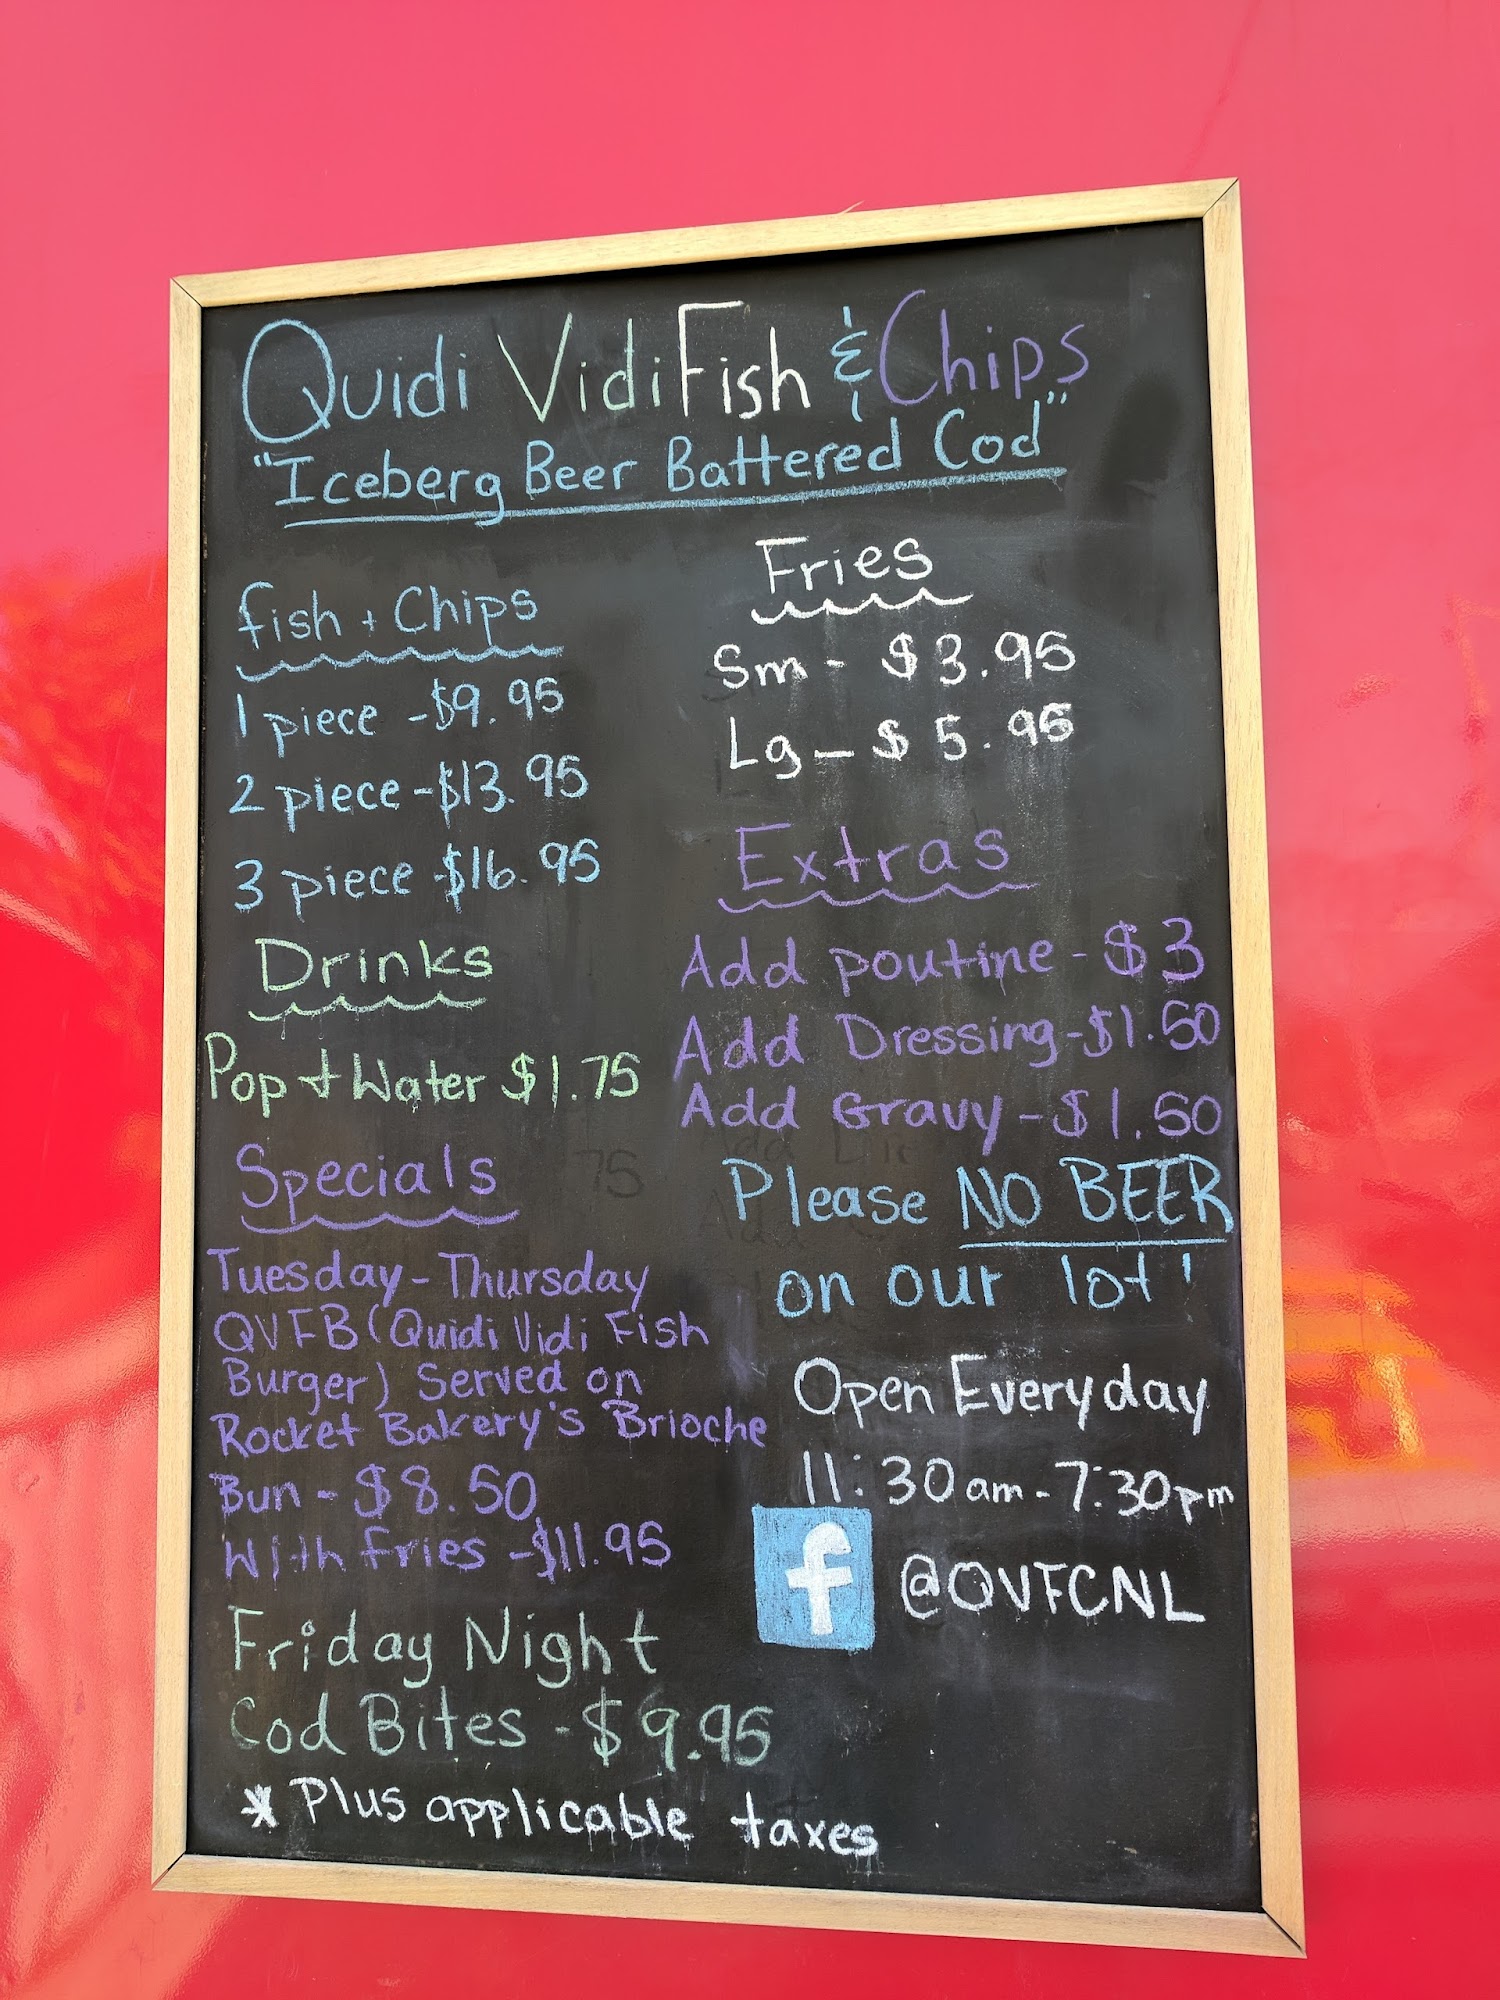 Quidi Vidi Fish & Chips
"Iceberg Beer Battered Cod"
fish + Chips
1 piece - $9.95
2 piece - $13.95
3 piece - $16.95
Drinks
Pop + Water $1.75
Specials
Tuesday - Thursday
QVFB (Quidi Vidi Fish
Burger) Served on
Rocket Bakery's Brioche
Bun - $8.50
With fries - $11.95
Friday Night
Cod Bites - $9.95
* Plus applicable taxes
Fries
Sm - $3.95
Lg - $5.95
Extras
Add poutine - $3
Add Dressing - $1.50
Add Gravy - $1.50
Please NO BEER
on our lot!
Open Everyday
11:30am - 7:30pm
f @QVFCNL